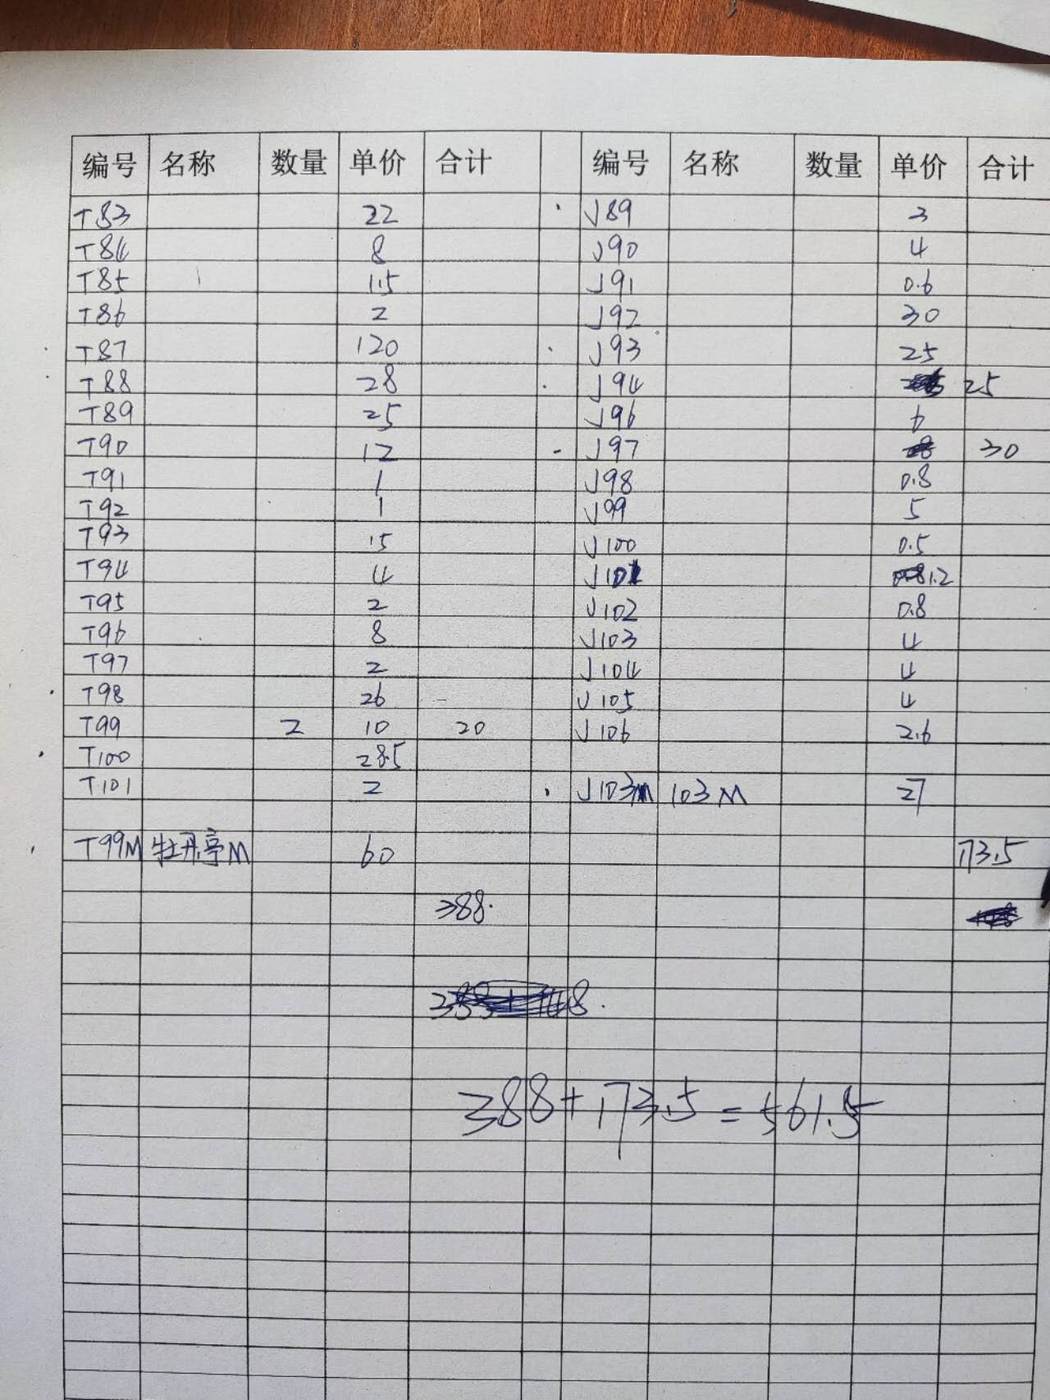 编号 名称 数量 单价 合计 编号 名称 数量 单价 合计
T83 22 J89 3
T84 8 J90 4
T85 1.5 J91 0.6
T86 2 J92 30
T87 120 J93 25
T88 28 J94 25
T89 25 J96 6
T90 12 J97 30
T91 1 J98 0.8
T92 1 J99 5
T93 15 J100 0.5
T94 4 J101 1.2
T95 2 J102 0.8
T96 8 J103 4
T97 2 J104 4
T98 26 J105 4
T99 2 10 20 J106 2.6
T100 28.5
T101 2 J103M 103M 27
T99M 牡丹亭M 60 173.5
388.
388+173.5=561.5